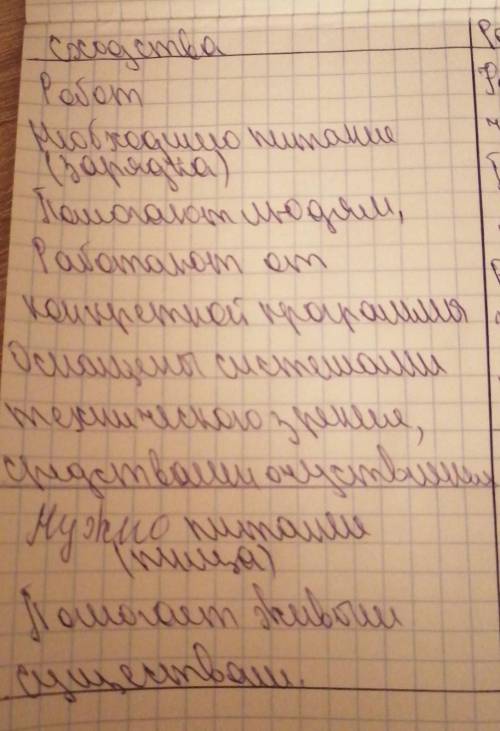 сходства
Робот
Необходимо питание
(зарядка)
Помогают людям,
Работают от
конкретной программы
Оснащены системами
технического зрения,
средствами очуствления
Нужно питание
(пища)
Помогает живым
существам.